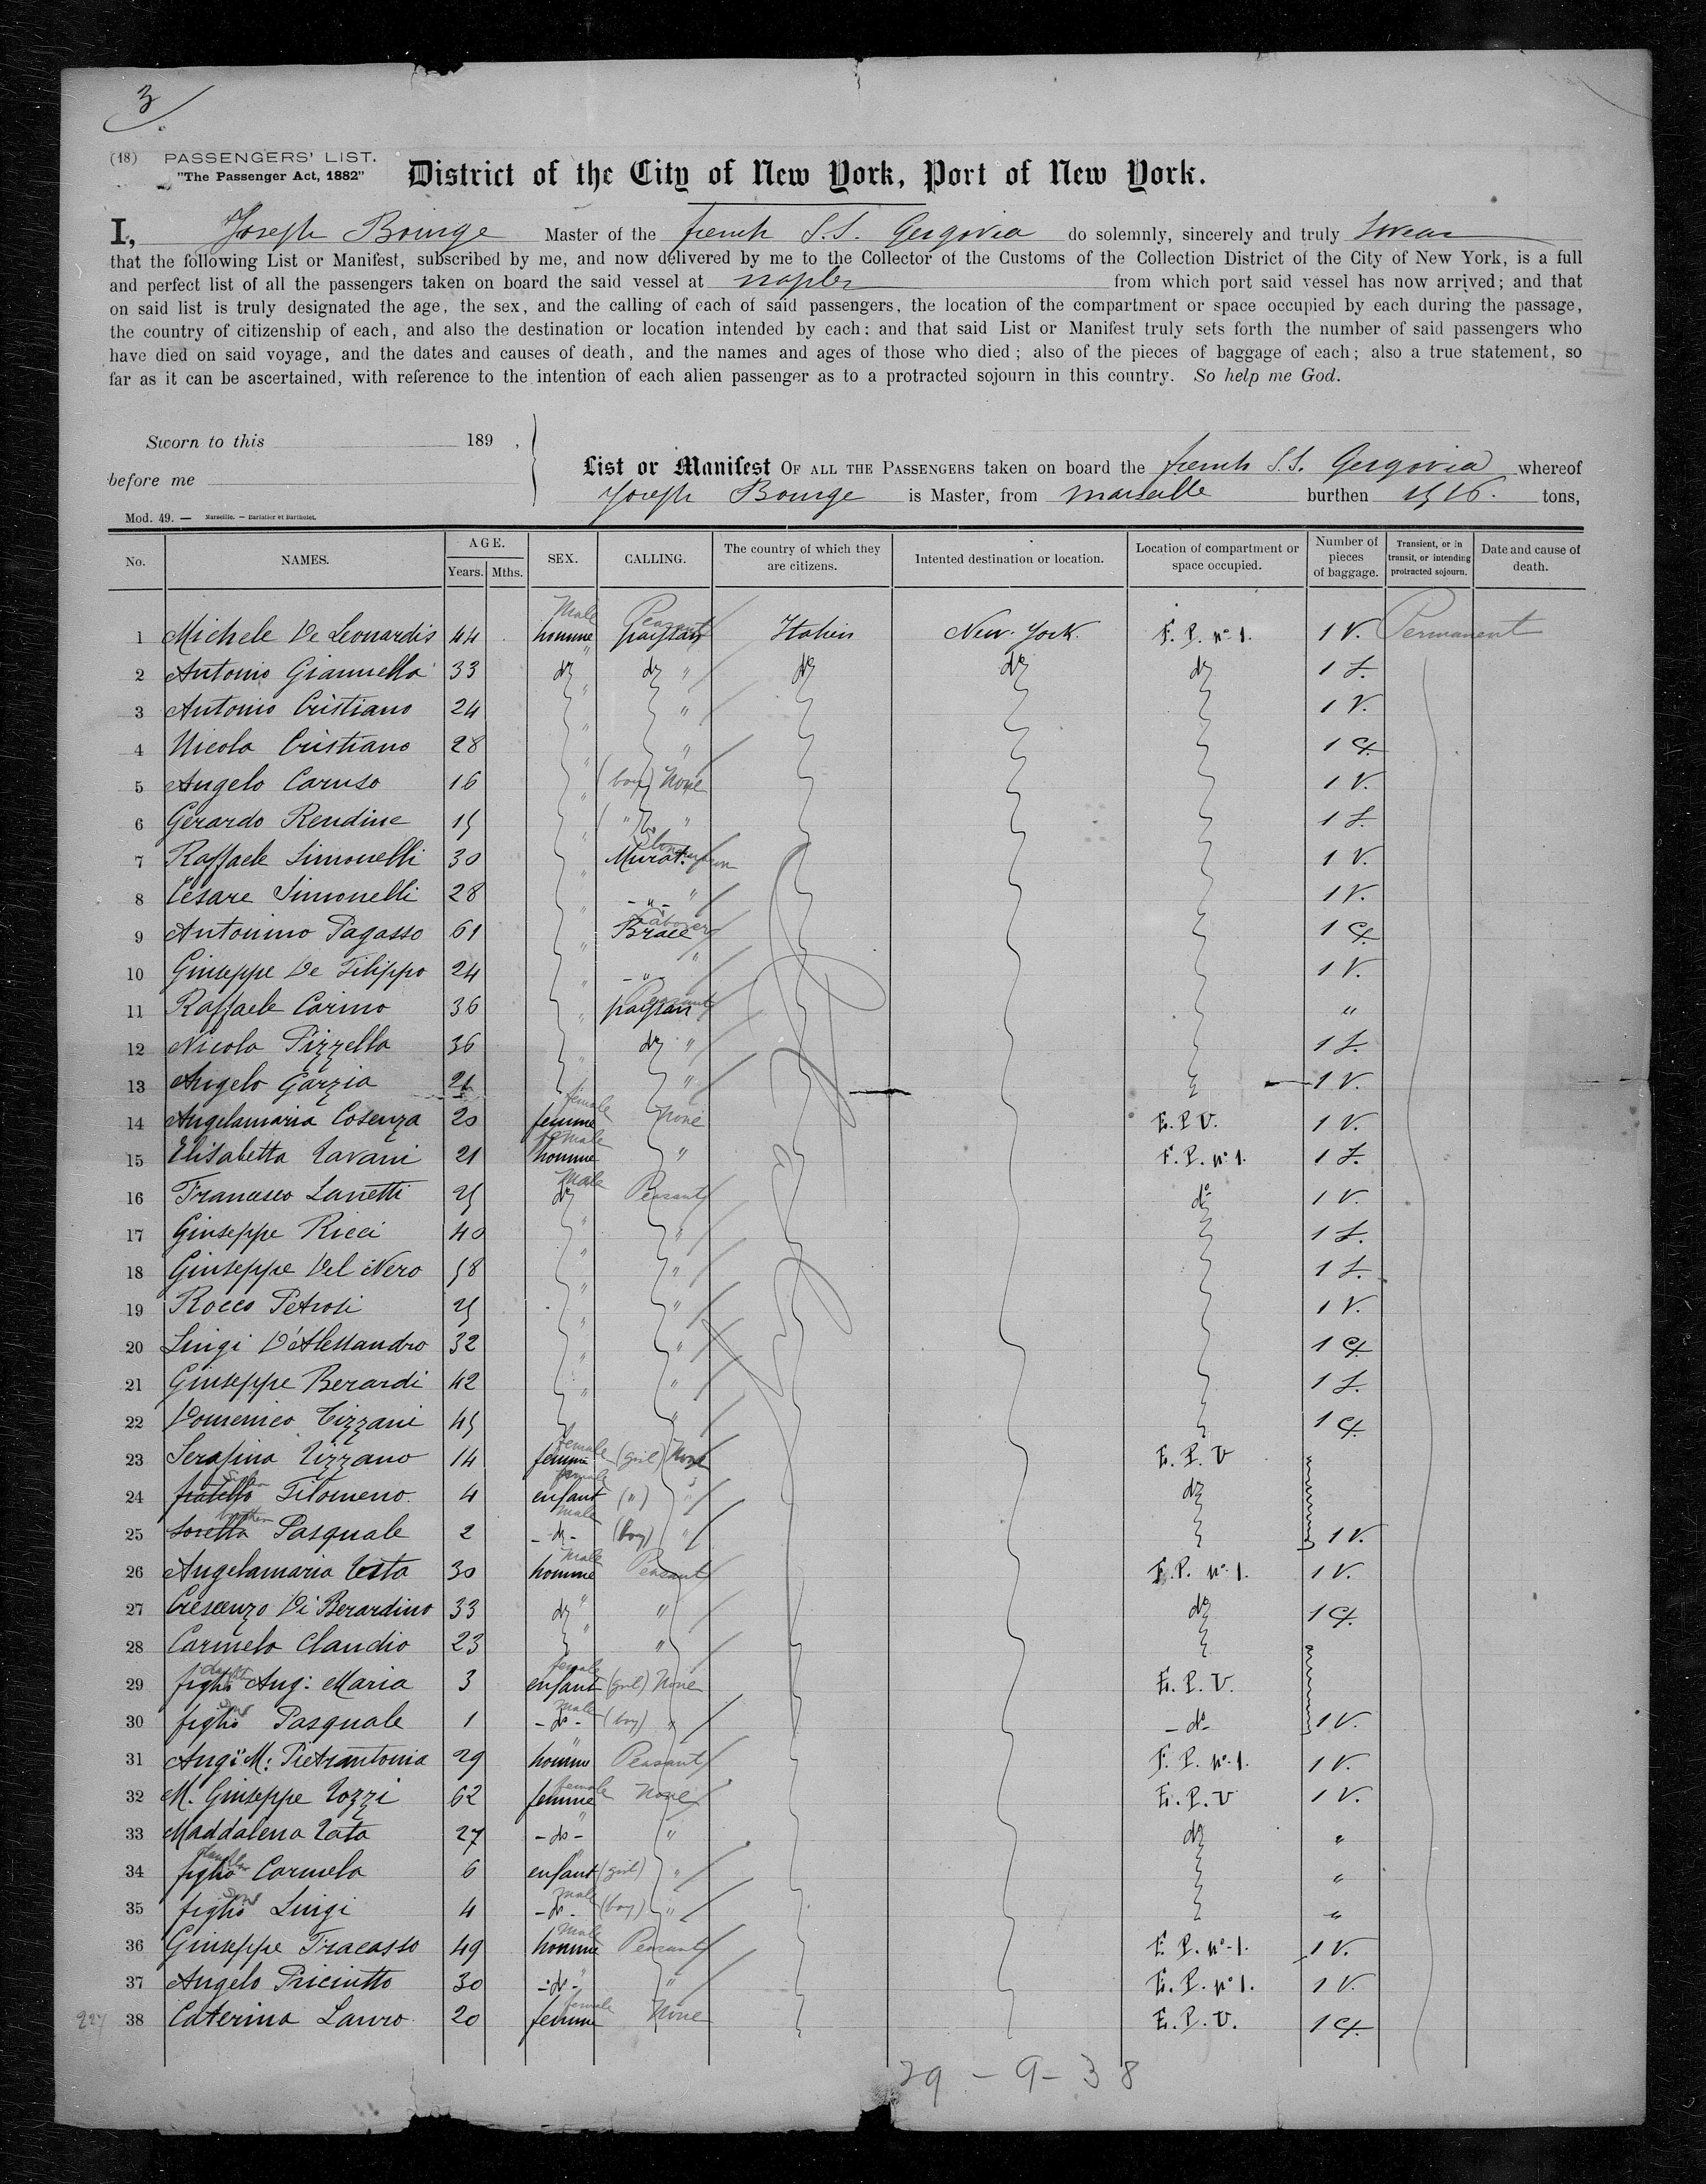 3
(18) PASSENGERS' LIST.
"The Passenger Act, 1882"
District of the City of New York, Port of New York.
I, Joseph Bourge Master of the french S.S. Gergovia do solemnly, sincerely and truly Swear
that the following List or Manifest, subscribed by me, and now delivered by me to the Collector of the Customs of the Collection District of the City of New York, is a full
and perfect list of all the passengers taken on board the said vessel at naples from which port said vessel has now arrived; and that
on said list is truly designated the age, the sex, and the calling of each of said passengers, the location of the compartment or space occupied by each during the passage,
the country of citizenship of each, and also the destination or location intended by each: and that said List or Manifest truly sets forth the number of said passengers who
have died on said voyage, and the dates and causes of death, and the names and ages of those who died; also of the pieces of baggage of each; also a true statement, so
far as it can be ascertained, with reference to the intention of each alien passenger as to a protracted sojourn in this country. So help me God.
Sworn to this 189 ,
before me
List or Manifest OF ALL THE PASSENGERS taken on board the french S.S. Gergovia whereof
Joseph Bourge is Master, from Marseille burthen tons,
Mod. 49. — Marseille. — Barlatier et Barthelet.
No. NAMES. AGE. Years. Mths. SEX. CALLING. The country of which they are citizens. Intented destination or location. Location of compartment or space occupied. Number of pieces of baggage. Transient, or in transit, or intending protracted sojourn. Date and cause of death.
1 Michele De Leonardis 44 Male homme Peasant paysan Italien New-York F. P. n° 1. 1 V. Permanent
2 Antonio Giannella 33 do do " do do do 1 S.
3 Antonio Cristiano 24 " " 1 V.
4 Nicola Cristiano 28 " " 1 C.
5 Angelo Caruso 16 " (boy) None 1 V.
6 Gerardo Rendine 15 " " " 1 S.
7 Raffaele Simonelli 30 " Murat. 1 V.
8 Cesare Simonelli 28 " -"- " 1 V.
9 Antonino Pagasso 61 " Laborer Brace 1 C.
10 Giuseppe De Filippo 24 " -"- " 1 V.
11 Raffaele Carino 36 " Peasant paysan "
12 Nicola Pizzella 36 " do " 1 S.
13 Angelo Garzia 21 " 1 V.
14 Angelamaria Cosenza 20 female femme None E. P. V. 1 V.
15 Elisabetta Tavani 21 female homme " F. P. n° 1. 1 S.
16 Francesco Lanetti 25 Male do Peasant do 1 V.
17 Giuseppe Ricci 40 " " 1 S.
18 Giuseppe Del Nero 58 " " 1 S.
19 Rocco Petrosi 25 " " 1 V.
20 Luigi D'Alessandro 32 " " 1 C.
21 Giuseppe Berardi 42 " " 1 S.
22 Domenico Tizzani 45 " " 1 C.
23 Serafina Tizzano 14 female femme (girl) None E. P. V
24 fratello Filomeno 4 female enfant (") " do
25 brother sorella Pasquale 2 male -do- (boy) " 1 V.
26 Angelamaria Testa 30 male homme Peasant F. P. n° 1. 1 V.
27 Crescenzo Di Berardino 33 do " " do 1 C.
28 Carmelo Claudio 23 " "
29 daughter figlio Ang: Maria 3 female enfant (girl) None E. P. V.
30 son figlio Pasquale 1 male -do- (boy) " -do- 1 V.
31 Ang: M: Pietrantonia 29 " homme Peasant F. P. n° 1. 1 V.
32 M. Giuseppe Tozzi 62 female femme None E. P. V 1 V.
33 Maddalena Tata 27 -do- " do "
34 daughter figlio Carmela 6 enfant (girl) " "
35 son figlio Luigi 4 male -do- (boy) " "
36 Giuseppe Fracasso 49 male homme Peasant F. P. n° 1. 1 V.
37 Angelo Priciutto 30 -do- " " E. P. n° 1. 1 V.
227 38 Caterina Lauro 20 female femme None E. P. V. 1 C.
29 - 9 - 38